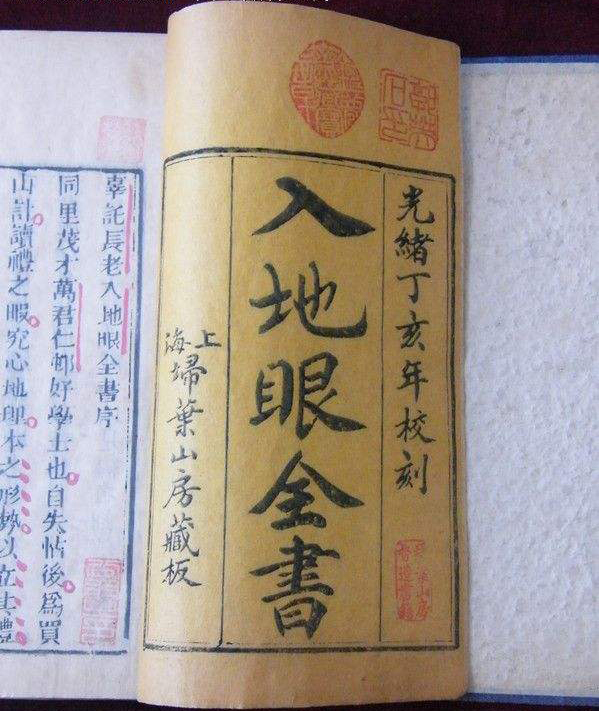 光緒丁亥年校刻
入地眼全書
上海
埽葉山房藏板
辜託長老入地眼全書序
同里茂才萬君仁邨好學士也自失怙後爲買
山計讀禮之暇究心地理本之形勢以立其體